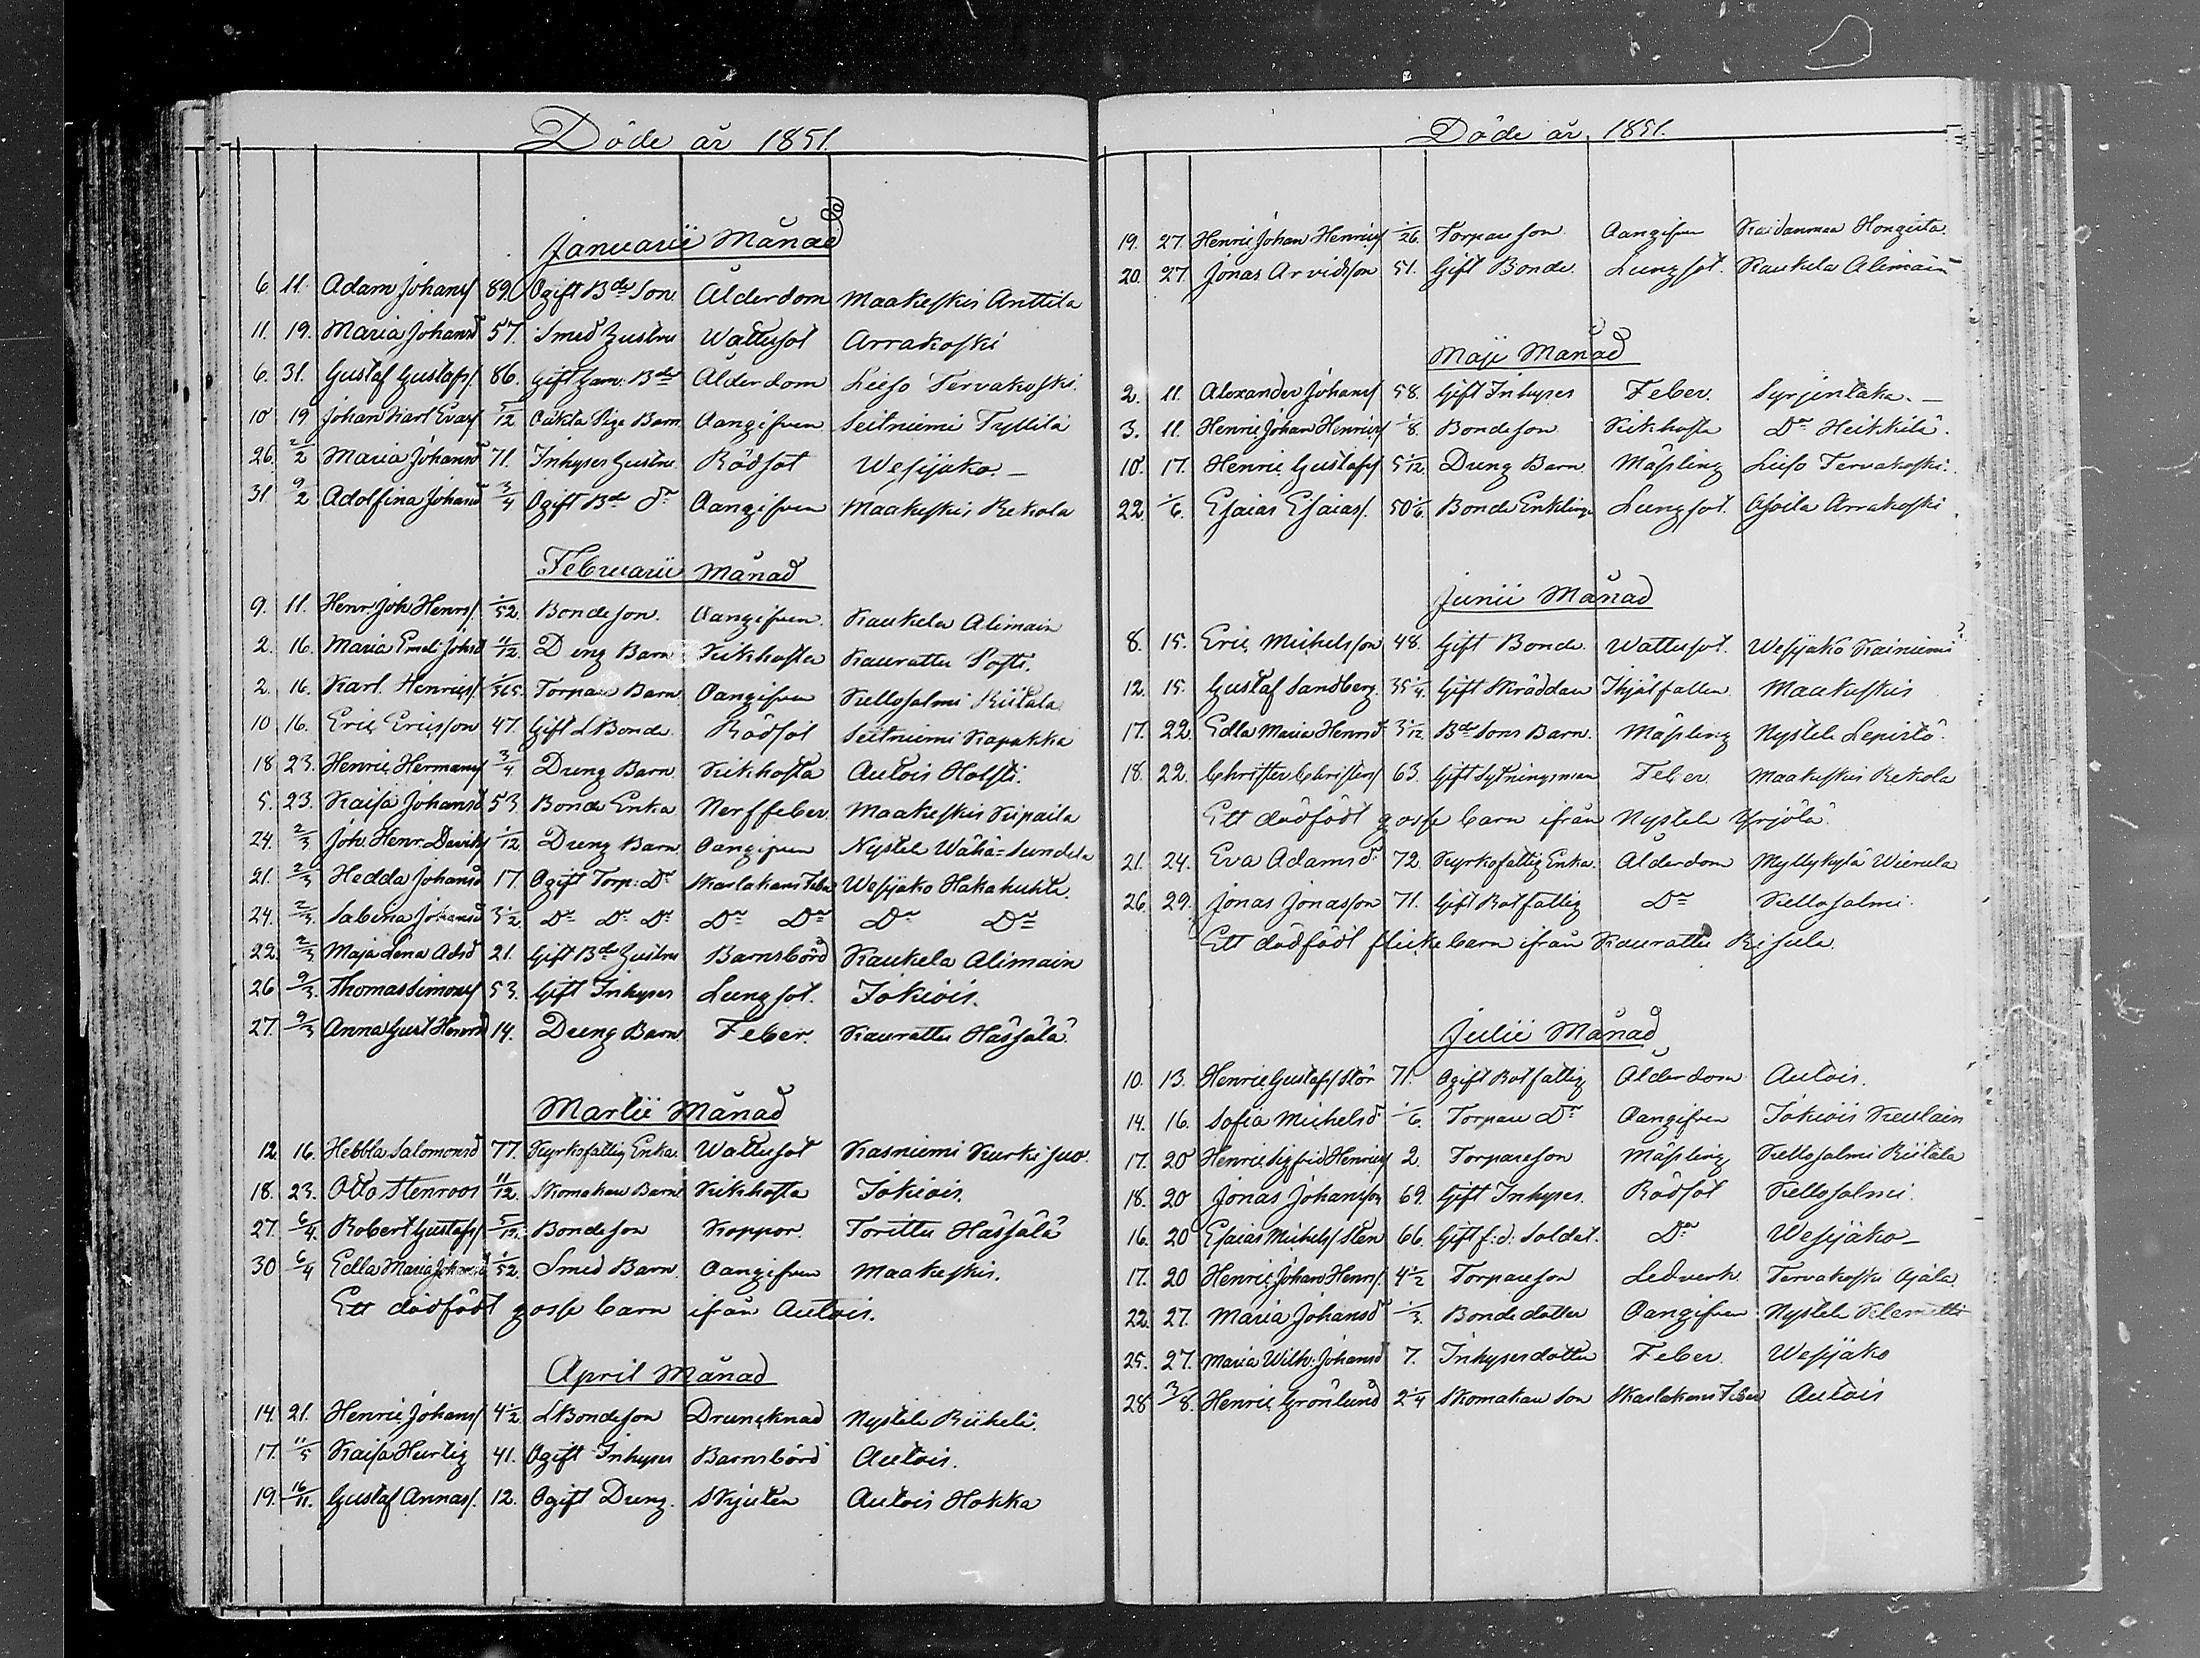 Döde år 1851.
Januarii Månad
6. 11. Adam Johans/ 89. Ogift Bde Son Ålderdom Maakeskis Anttila
11. 19. Maria Johansd 57. Smed Hustru Wattusot Arrakoski
6. 31. Gustaf Gustafs/ 86. Gift Gam: Bde Ålderdom Leiso Tervakoski
10 19 Johan Karl Evas/ 5/12 Oäkta Piga Barn Oangifven Seitniemi Tyllilä
26. 2/2 Maria Johansd 71. Inhyses Hustru Rödsot Wesijako.
31 9/2 Adolfina Johansd 3/4 Ogift Bde Dr Oangifven Maakeskis Rekola
Februarii Månad
9. 11. Henr: Joh Henrs/. 1/52. Bondeson. Oangifven. Kaukela Alimain
2. 16. Maria Emel: Johsd 11/12. Dreng Barn Kikhosta Kaurattu Posti.
2. 16. Karl Henrics/ 1/365. Torpare Barn. Oangifven Kellosalmi Riitala.
10 16. Eric Ericsson 47. Gift LBonde. Rödsot Seitniemi Kapakka
18 23. Henric Hermans/ 3/4 Dreng Barn. Kikhosta Autois Holsti.
5. 23. Kaisa Johansd 53. Bonde Enka Nerffeber Maakeskis Piipaila
24. 2/3 Joh: Henr: Davids/ 1/12 Dreng Barn Oangifven Nystele Wähä-Sundila
21. 2/3 Hedda Johansd 17. Ogift Torp: Dr Skarlakans Feber Wesijako Hakahuhta.
24. 2/3. Sabina Johansd 3 1/2. Do Do Do Do Do Do Do
22 2/3 Maja Lena Adsd 21. Gift Bde Hustru Barnsbörd Kaukela Alimain
26 9/3. Thomas Simons/ 53. Gift Inhyses Lungsot. Jokiois.
27. 9/3 Anna Gust Henrsd 14. Dreng Barn Feber. Kaurattu Hassala
Martii Månad
12. 16. Hebbla Salomonsd 77. Kyrkofattig Enka. Wattusot Kasniemi Kurkisuo.
18. 23. Otto Stenroos 11/12. Skomakare Barn Kikhosta Jokiois.
27. 6/4. Robert Gustafs/ 5/12. Bondeson Koppor. Torittu Hassala
30 6/4 Edla Maria Johansd 1/52. Smed Barn. Oangifven Maakeskis.
Ett dödfödt gosse barn ifrån Autois.
April Månad
14. 21. Henric Johans/ 4 1/2. LBondeson Drunknad Nystele Riikeli.
17. 11/5 Kaisa Hurtig 41. Ogift Inhyses Barnsbörd Autois.
19. 16/11. Gustaf Annas/. 12. Ogift Dreng. Skjuten Autois Hokka
Döde år 1851.
19. 27. Henric Johan Henrics/ 1/26. Torpareson. Oangifven Kaidanmaa Hongista.
20. 27. Jonas Arvidsson 51. Gift Bonde. Lungsot. Kaukela Alimain
Maji Månad
2. 11. Alexander Johans/ 58. Gift Inhyses Feber. Syrjentaka.
3. 11. Henric Johan Henrics/ 1/8. Bondeson Kikhosta Do Heikkilä.
10. 17. Henric Gustafs/ 5/12. Dreng Barn Mäsling Leiso Tervakoski.
22. 1/6. Esaias Esaias/. 50 1/6. Bonde Enkling Lungsot. Ajoila Arrakoski
Junii Månad
8. 15. Eric Michelsson 48. Gift Bonde. Wattusot. Wesijako Kainiemi
12. 15. Gustaf Sandberg. 35 1/4. Gift Skräddare Ihjälfallen Maakeskis
17. 22. Edla Maria Henrsd 3/12. Bde Sons Barn. Mäsling Nystele Lepistö.
18. 22. Christer Christers/ 63. Gift Sytningsman Feber Maakeskis Rekola
Ett dödfödt gosse barn ifrån Nystele Yrjölä.
21. 24. Eva Adamsd 72. Kyrkofattig Enka. Ålderdom Myllykylä Wierula
26. 29. Jonas Jonasson 71. Gift Rotfattig Do Kellosalmi.
Ett dödfödt flickebarn ifrån Kaurattu Risula.
Julii Månad
10. 13. Henric Gustafs/ Stör 71. Ogift Rotfattig Ålderdom Autois.
14. 16. Sofia Michelsd 1/6. Torpare Dr Oangifven Jokiois Keulain
17. 20 Henric Sigfrid Henrics/ 2. Torpareson Mäsling Kellosalmi Riitala
18. 20 Jonas Johansson 69. Gift Inhyses. Rödsot Kellosalmi.
16. 20 Esaias Michels/ Sten 66. Gift f:d: Soldat. Do Wesijako
17. 20 Henric Johan Henrs/. 4 1/2 Torpareson Ledverk Tervakoski Ajala.
22. 27. Maria Johansd 1/3. Bondedotter Oangifven Nystele Klemetti
25. 27. Maria Wilh: Johansd 7. Inhysesdotter Feber. Wesijako
28 3/8. Henric Grönlund 2 1/4 Skomakare Son Skarlakans Feber Autois